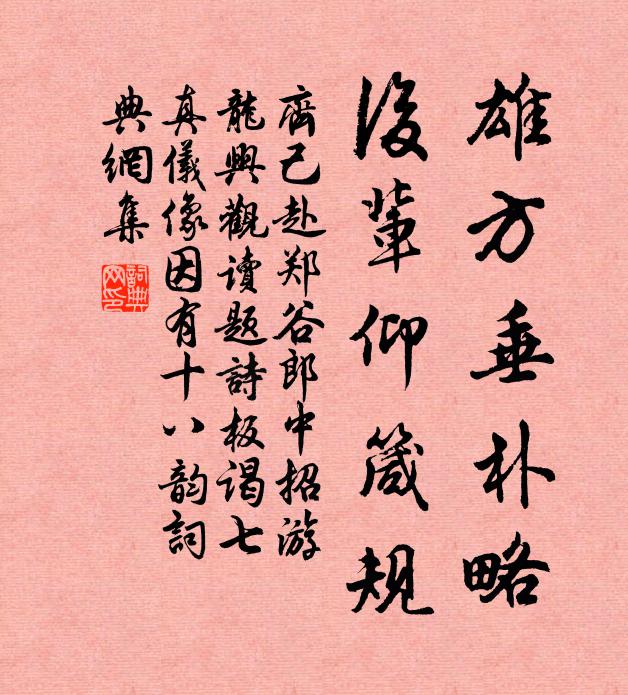 雄方垂朴略
後輩仰箴規
齊己赴郑谷郎中招游
龍興觀讀题詩板谒七
真儀像因有十八韵詞
典網集
詞典网印